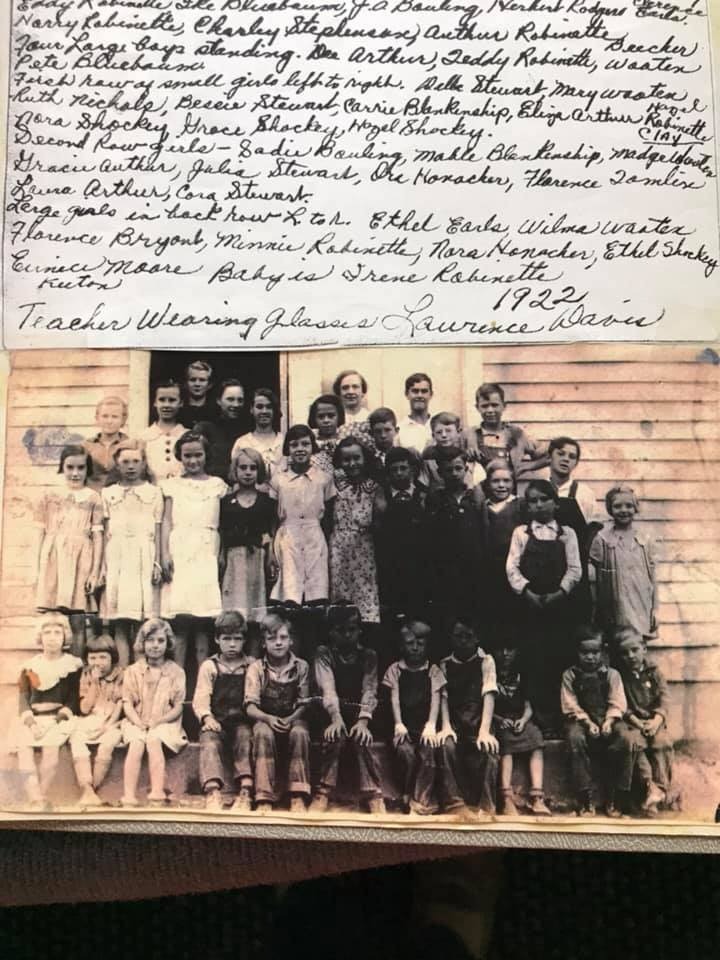 Eddy Robinette Ike Bluebaum, J.A Bowling, Herbert Rodgers
Earls.
Harry Robinette, Charley Stephenson, Arthur Robinette Beecher
Four Large boys standing. Dee Arthur, Teddy Robinette, Wooten
Pete Bluebaum
First row of small girls left to right. Della Stewart, Mary Wooten
Ruth Nichols, Bessie Stewart, Carrie Blankenship, Eliza Arthur Hazel Robinette
Clay
Nora Shockey, Grace Shockey, Hazel Shockey.
Second Row girls - Sadie Bowling, Mable Blankenship, Madge Wooten
Gracie Arthur, Julia Stewart, Ora Honacker, Florence Tomlin
Laura Arthur, Cora Stewart.
Large girls in back row L to r. Ethel Earls, Wilma Wooten
Florence Bryant, Minnie Robinette, Nora Honacher, Ethel Shockey
Eunice Moore Baby is Irene Robinette
Keeton
1922
Teacher Wearing glasses Lawrence Davis